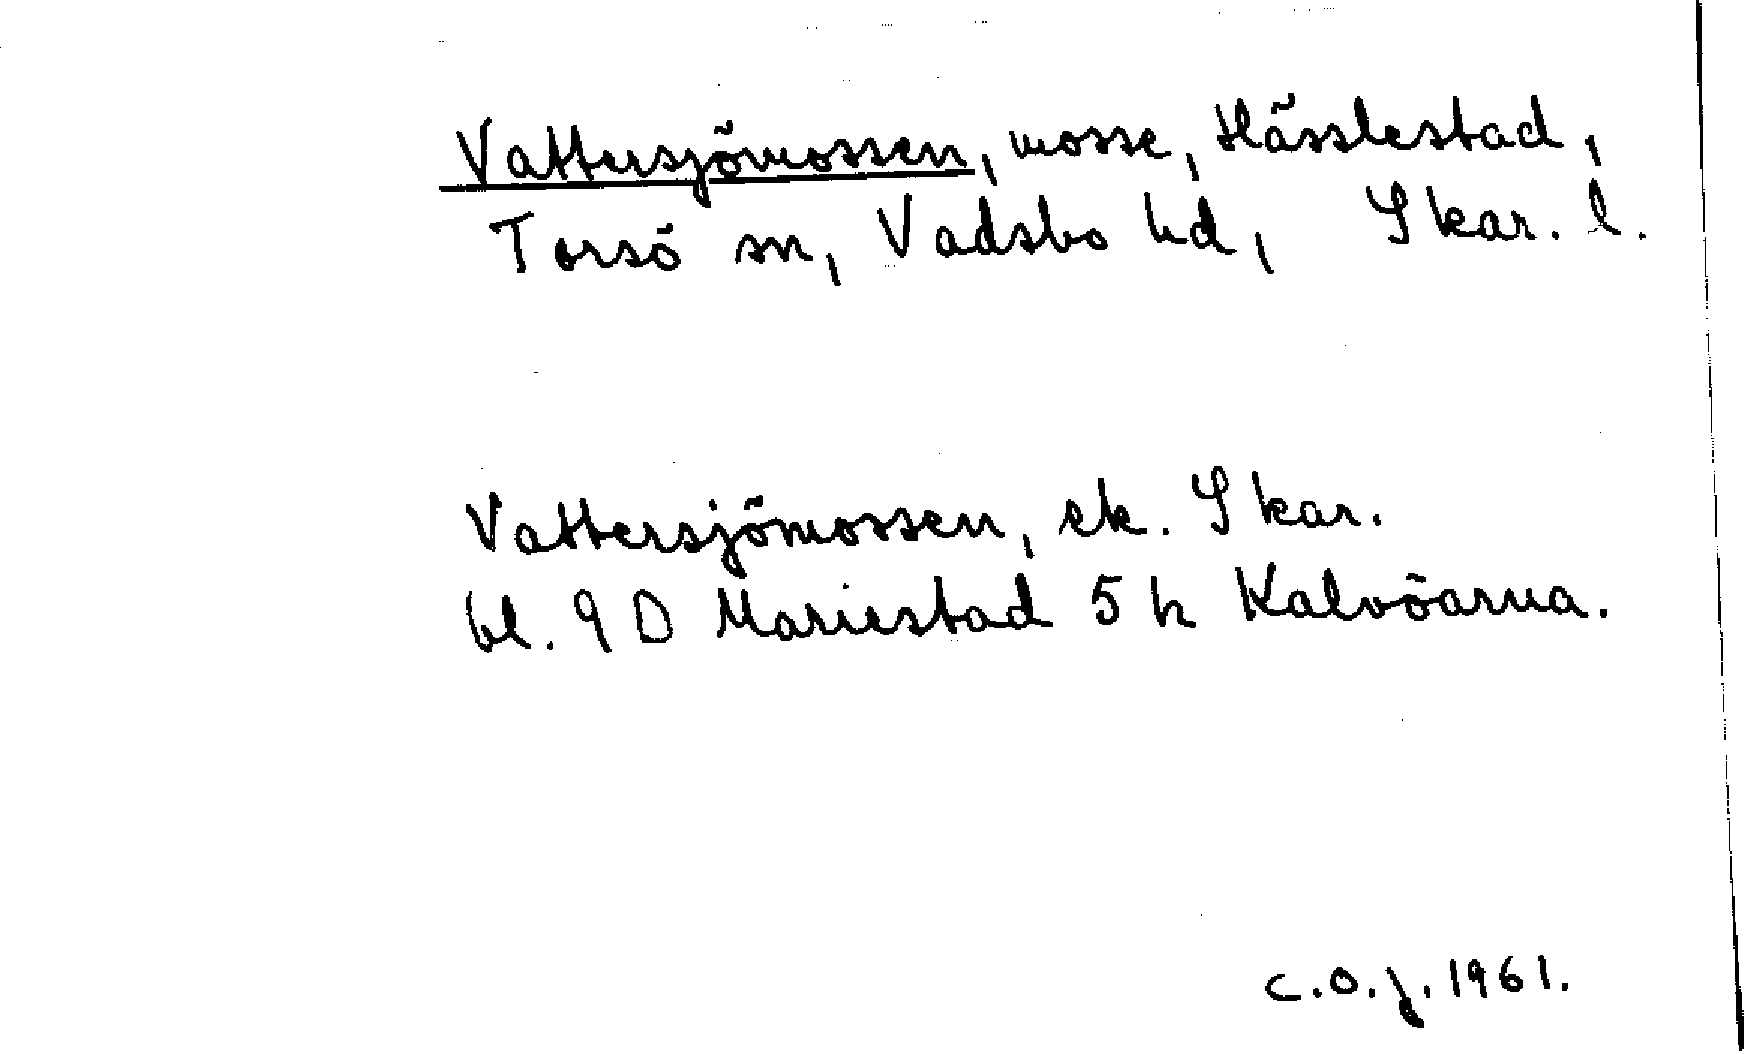 Vattersjömossen, mosse, Hässlestad,
Torsö sn, Vadsbo hd, Skar. l.
Vattersjömossen, ek. Skar.
bl. 9 D Mariestad 5 h Kalvöarna.
C.O.J. 1961.